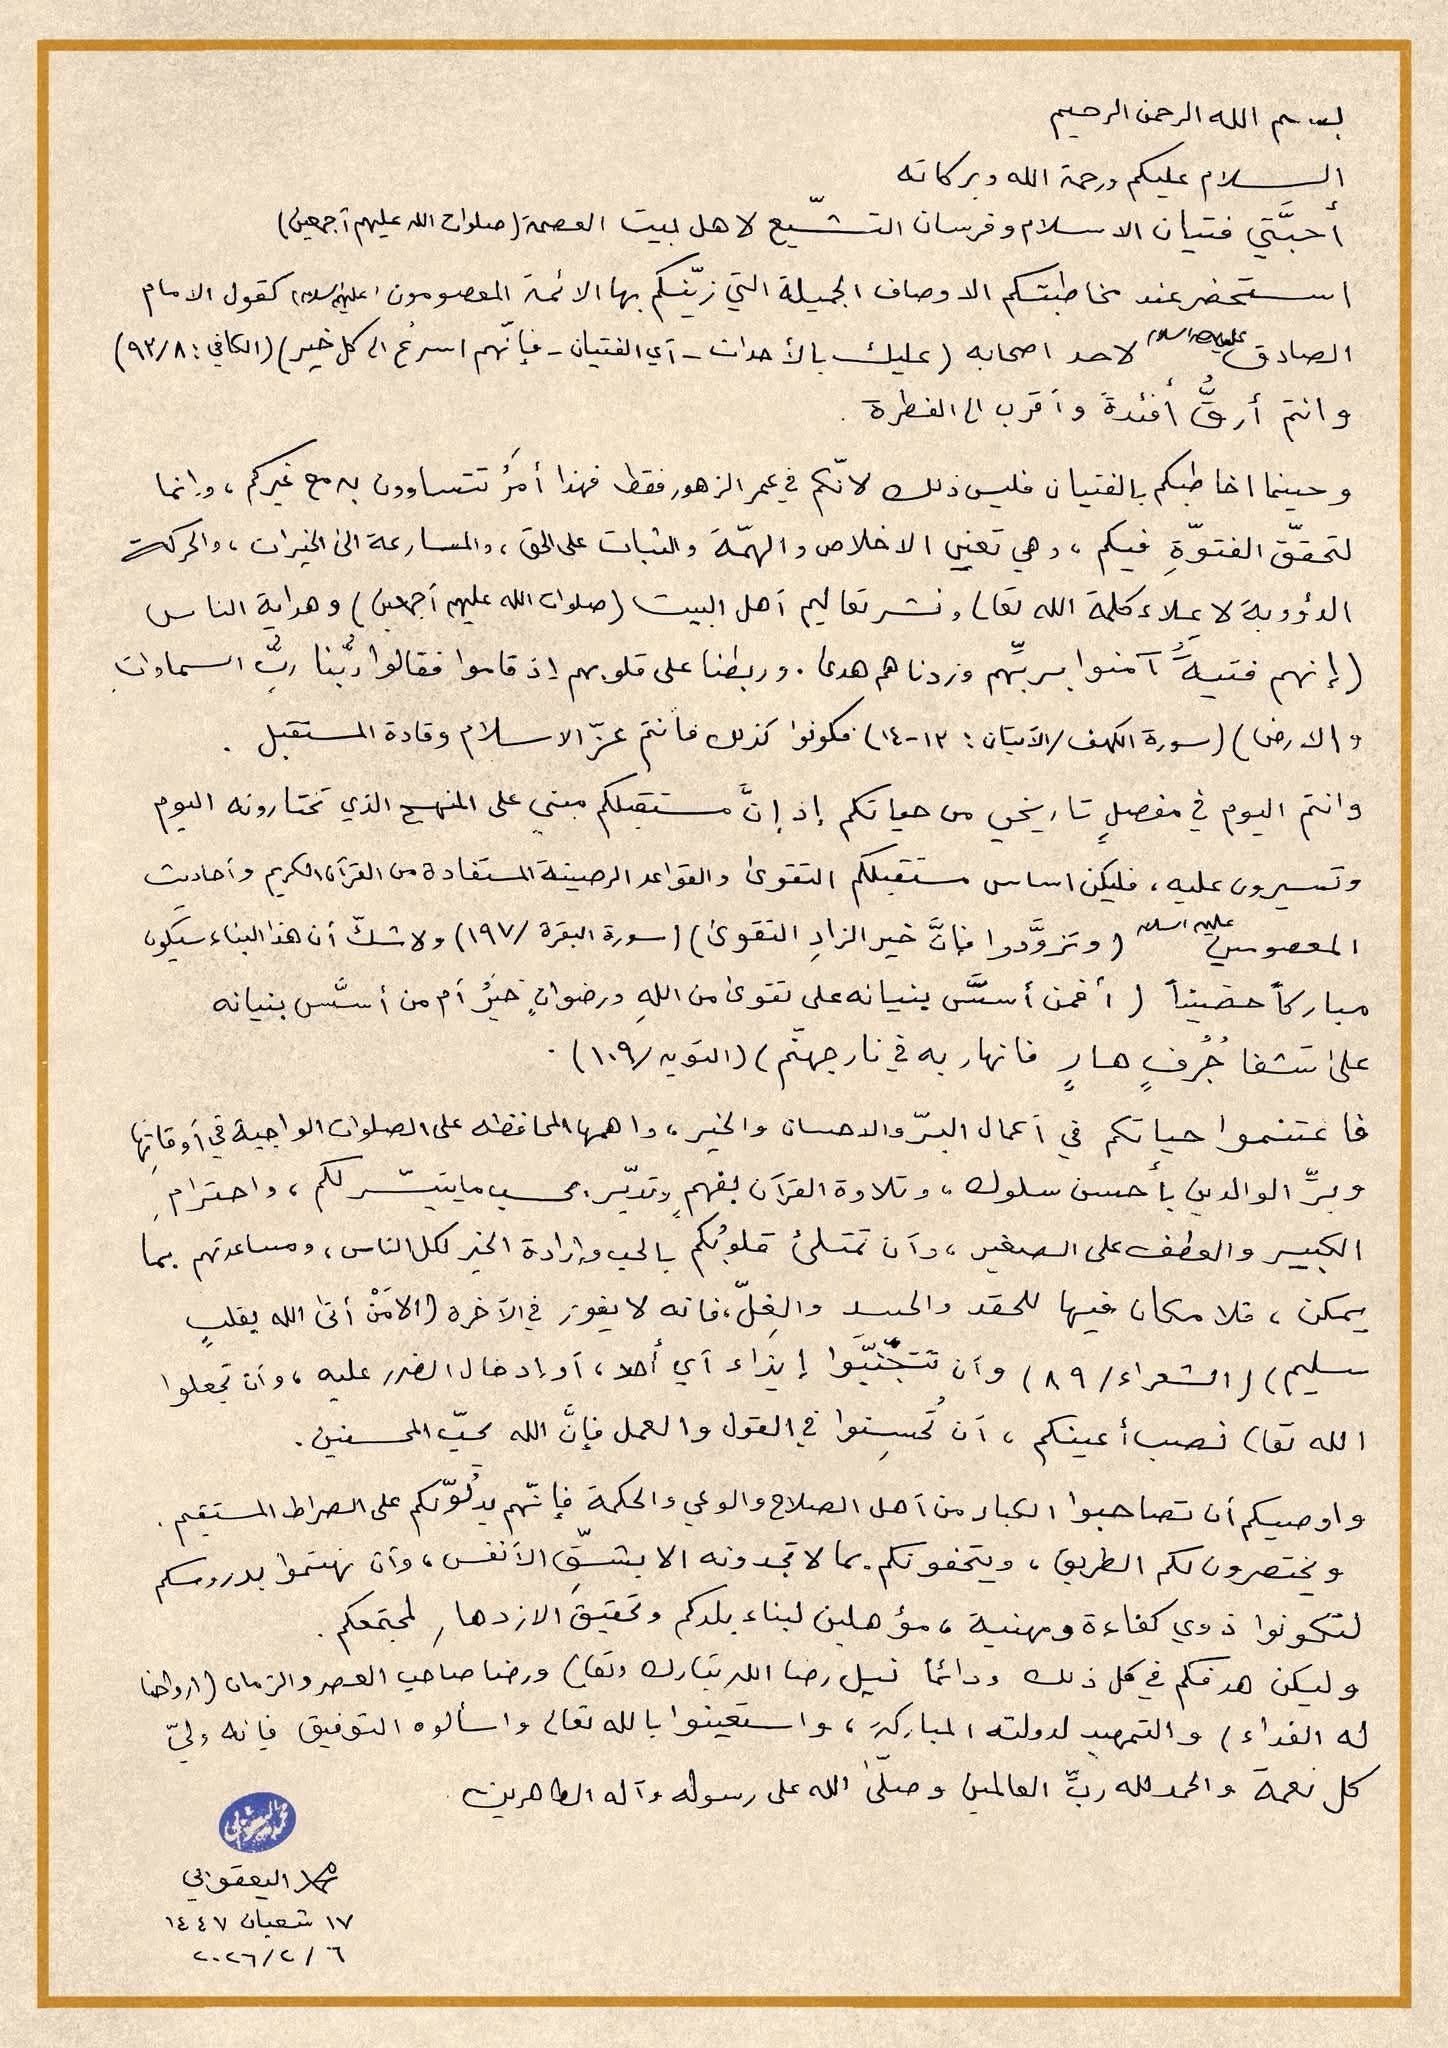 بسم الله الرحمن الرحيم
السلام عليكم ورحمة الله وبركاته
أحبَّتي فتيان الاسلام وفرسان التشيّع لاهل بيت العصمة (صلوات الله عليهم أجمعين)
استحضر عند مخاطبتكم الاوصاف الجميلة التي زيّنكم بها الائمة المعصومون (عليهم السلام) كقول الامام
الصادق عليه السلام لاحد اصحابه (عليك بالأحداث - أي الفتيان - فإنّهم اسرعُ الى كل خير) (الكافي: ٩٣/٨)
وانتم أرقُّ أفئدةً وأقرب الى الفطرة.
وحينما اخاطبكم بالفتيان فليس ذلك لانّكم في عمر الزهور فقط فهذا أمرٌ تتساوون به مع غيركم، وإنما
لتحقّق الفتوّةِ فيكم، وهي تعني الاخلاص والهمّة والثبات على الحق، والمسارعة الى الخيرات، والحركة
الدؤوبة لاعلاء كلمة الله تعالى ونشر تعاليم أهل البيت (صلوات الله عليهم أجمعين) وهداية الناس
(إنهم فتيةٌ آمنوا بربِّهم وزدناهم هدىً. وربطنا على قلوبهم إذ قاموا فقالوا ربُّنا ربُّ السماواتِ
والارض) (سورة الكهف/الآيتان: ١٣-١٤) فكونوا كذلك فأنتم عزّ الاسلام وقادة المستقبل.
وانتم اليوم في مفصلٍ تاريخي من حياتكم إذ إنَّ مستقبلكم مبني على المنهج الذي تختارونه اليوم
وتسيرون عليه، فليكن اساس مستقبلكم التقوى والقواعد الرصينة المستفادة من القرآن الكريم وأحاديث
المعصومين عليهم السلام (وتزوَّدوا فإنَّ خير الزادِ التقوى) (سورة البقرة /١٩٧) ولا شكّ أن هذا البناء سيكون
مباركاً حصيناً (أفمن أسَّس بنيانه على تقوى من اللهِ ورضوانٍ خيرٌ أم من أسَّس بنيانه
على شفا جُرُفٍ هارٍ فانهار به في نار جهنّم) (التوبة/١٠٩).
فاغتنموا حياتكم في أعمال البرّ والاحسان والخير، واهمها المحافظة على الصلوات الواجبة في أوقاتِها
وبرِّ الوالدين بأحسن سلوك، وتلاوة القرآن بفهمٍ وتدبّر بحسب ما يتيسّر لكم، واحترامِ
الكبير والعطف على الصغير، وأن تمتلئ قلوبُكم بالحب وإرادة الخير لكل الناس، ومساعدتهم بما
يمكن، فلا مكان فيها للحقد والحسد والغِلّ، فانه لا يفوز في الآخرة (الا مَنْ أتى الله بقلبٍ
سليم) (الشعراء/ ٨٩) وأن تتجنّبَوا إيذاء أي أحد، أو إدخال الضرر عليه، وأن تجعلوا
الله تعالى نصب أعينكم، أن تُحسِنوا في القول والعمل فإنَّ الله يحبّ المحسنين.
واوصيكم أن تصاحبوا الكبار من أهل الصلاح والوعي والحكمة فإنّهم يدلُّونكم على الصراط المستقيم.
ويختصرون لكم الطريق، ويتحفونكم بما لا تجدونه الا بشقِّ الأنفس، وأن تهتموا بدروسكم
لتكونوا ذوي كفاءة ومهنية، مؤهلين لبناء بلدكم وتحقيق الازدهارِ لمجتمعكم.
وليكن هدفكم في كل ذلك ودائماً نيل رضا الله تبارك وتعالى ورضا صاحب العصر والزمان (ارواحنا
له الفداء) والتمهيد لدولته المباركة، واستعينوا بالله تعالى واسألوه التوفيق فإنه وليّ
كل نعمة والحمد لله ربِّ العالمين وصلّى الله على رسوله وآله الطاهرين.
محمد اليعقوبي
محمد اليعقوبي
١٧ شعبان ١٤٤٧
٢٠٢٦/٢/٦